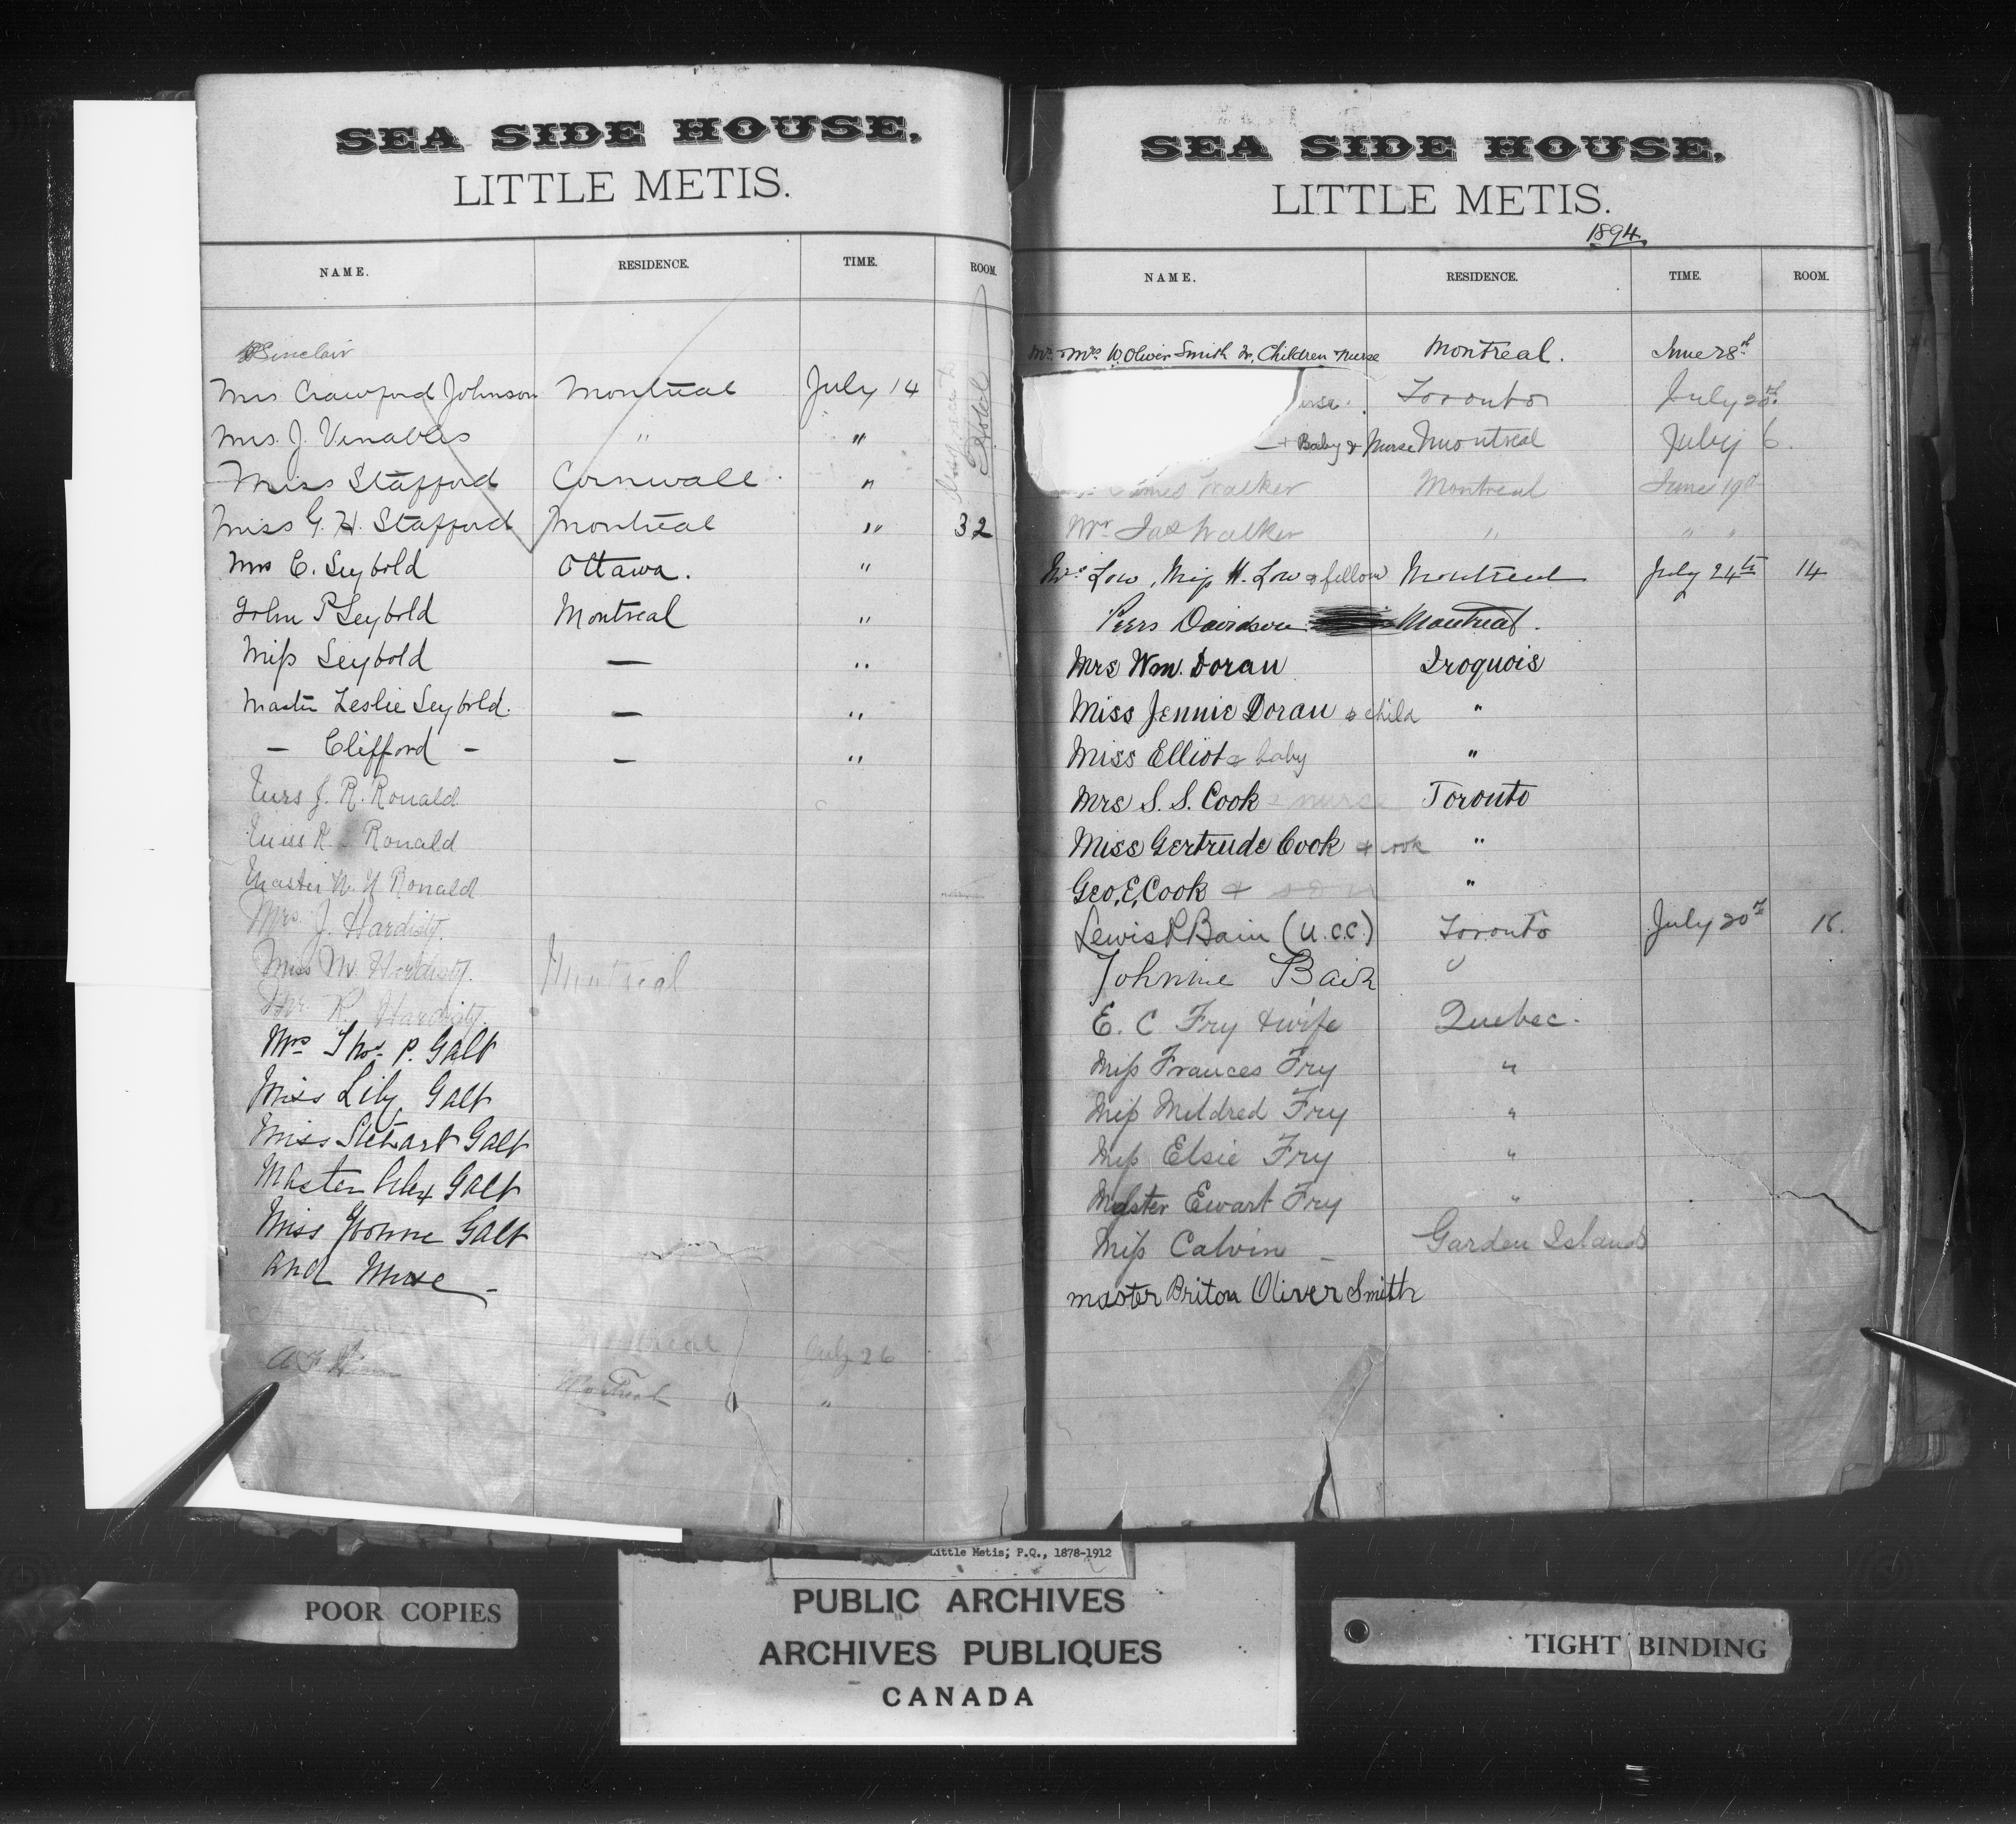 SEA SIDE HOUSE,
LITTLE METIS.
NAME. RESIDENCE. TIME. ROOM.
Sinclair
Mrs Crawford Johnson Montreal July 14
Mrs. J. Venables " "
Miss Stafford Cornwall "
Miss G. H. Stafford Montreal " 32
Mrs C. Seybold Ottawa. "
John P Seybold Montreal "
Miss Seybold — "
Master Leslie Seybold. — "
— Clifford — — "
Mrs J. R. Ronald
Miss R Ronald
Master W. Y Ronald
Mrs. J. Hardisty.
Miss M. Hardisty. Montreal
Mr. R. Hardisty.
Mrs Thos. P. Galt
Miss Lily Galt
Miss Stewart Galt
Master Alex Galt
Miss Yvonne Galt
and Nurse
Montreal July 26
A F Montreal "
Hotel
SEA SIDE HOUSE,
LITTLE METIS.
1894
NAME. RESIDENCE. TIME. ROOM.
Mr & Mrs W. Oliver Smith Children Nurse Montreal. June 28th
urse. Toronto July 20th
+ Baby & Nurse Montreal July 6.
James Walker Montreal June 19th
Mr Jas Walker " " "
Mrs Low, Miss H. Low & fellow Montreal July 24th 14
Peers Davidson Montreal.
Mrs Wm. Doran Iroquois
Miss Jennie Doran & child "
Miss Elliot & baby "
Mrs S. S. Cook & nurse Toronto
Miss Gertrude Cook & cook "
Geo. E. Cook & son "
Lewis R Bain (U.C.C.) Toronto July 20th 16.
Johnnie Bain "
E. C Fry & wife Quebec.
Miss Frances Fry "
Miss Mildred Fry "
Miss Elsie Fry "
Master Ewart Fry "
Miss Calvin — Garden Island
Master Briton Oliver Smith
Little Metis; P.Q., 1878-1912
PUBLIC ARCHIVES
ARCHIVES PUBLIQUES
CANADA
POOR COPIES
TIGHT BINDING